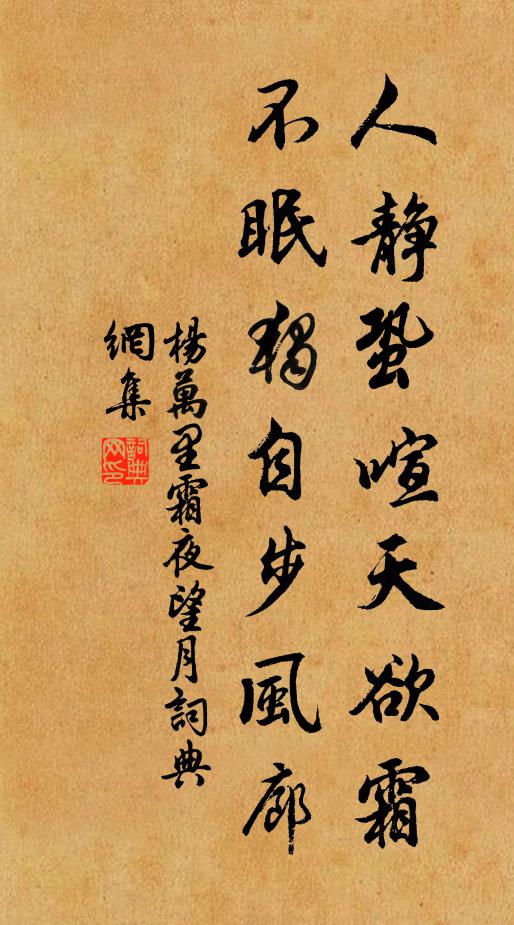 人靜蛩喧天欲霜
不眠獨自步風廊
楊萬里霜夜望月詞典
網集
詞典網印